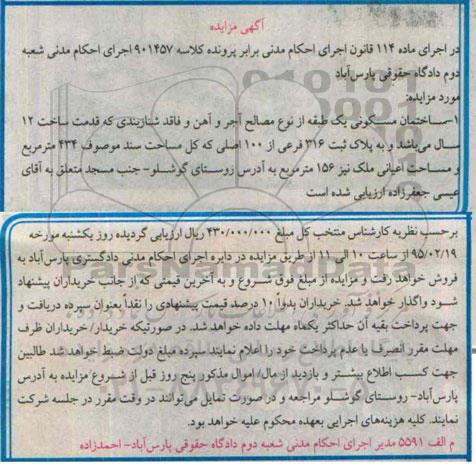 آگهی مزایده
در اجرای ماده ۱۱۴ قانون اجرای احکام مدنی برابر پرونده کلاسه ۹۰۱۴۵۷ اجرای احکام مدنی شعبه
دوم دادگاه حقوقی پارس‌آباد
مورد مزایده:
۱-ساختمان مسکونی یک طبقه از نوع مصالح آجر و آهن و فاقد شناژبندی که قدمت ساخت ۱۲
سال می‌باشد و به پلاک ثبت ۳۱۶ فرعی از ۱۰۰ اصلی که کل مساحت سند موصوف ۴۳۴ مترمربع
و مساحت اعیانی ملک نیز ۱۵۶ مترمربع به آدرس روستای گوشلو- جنب مسجد متعلق به آقای
عیسی جعفرزاده ارزیابی شده است
برحسب نظریه کارشناس منتخب کل مبلغ ۴۳۰/۰۰۰/۰۰۰ ریال ارزیابی گردیده روز یکشنبه مورخه
۹۵/۰۲/۱۹ از ساعت ۱۰ الی ۱۱ از طریق مزایده در دایره اجرای احکام مدنی دادگستری پارس‌آباد به
فروش خواهد رفت و مزایده از مبلغ فوق شروع و به آخرین قیمتی که از جانب خریداران پیشنهاد
شود واگذار خواهد شد. خریداران بدواً ۱۰ درصد قیمت پیشنهادی را نقداً بعنوان سپرده دریافت و
جهت پرداخت بقیه آن حداکثر یکماه مهلت داده خواهد شد. در صورتیکه خریدار/ خریداران ظرف
مهلت مقرر انصراف یا عدم پرداخت خود را اعلام نمایند سپرده مبلغ دولت ضبط خواهد شد طالبین
جهت کسب اطلاع بیشتر و بازدید از مال/اموال مذکور پنج روز قبل از شروع مزایده به آدرس
پارس‌آباد- روستای گوشلو مراجعه و در صورت تمایل می‌توانند در وقت مقرر در جلسه شرکت
نمایند. کلیه هزینه‌های اجرایی بعهده محکوم علیه خواهد بود.
م الف ۵۵۹۱ مدیر اجرای احکام مدنی شعبه دوم دادگاه حقوقی پارس‌آباد- احمدزاده
ParsNamadData